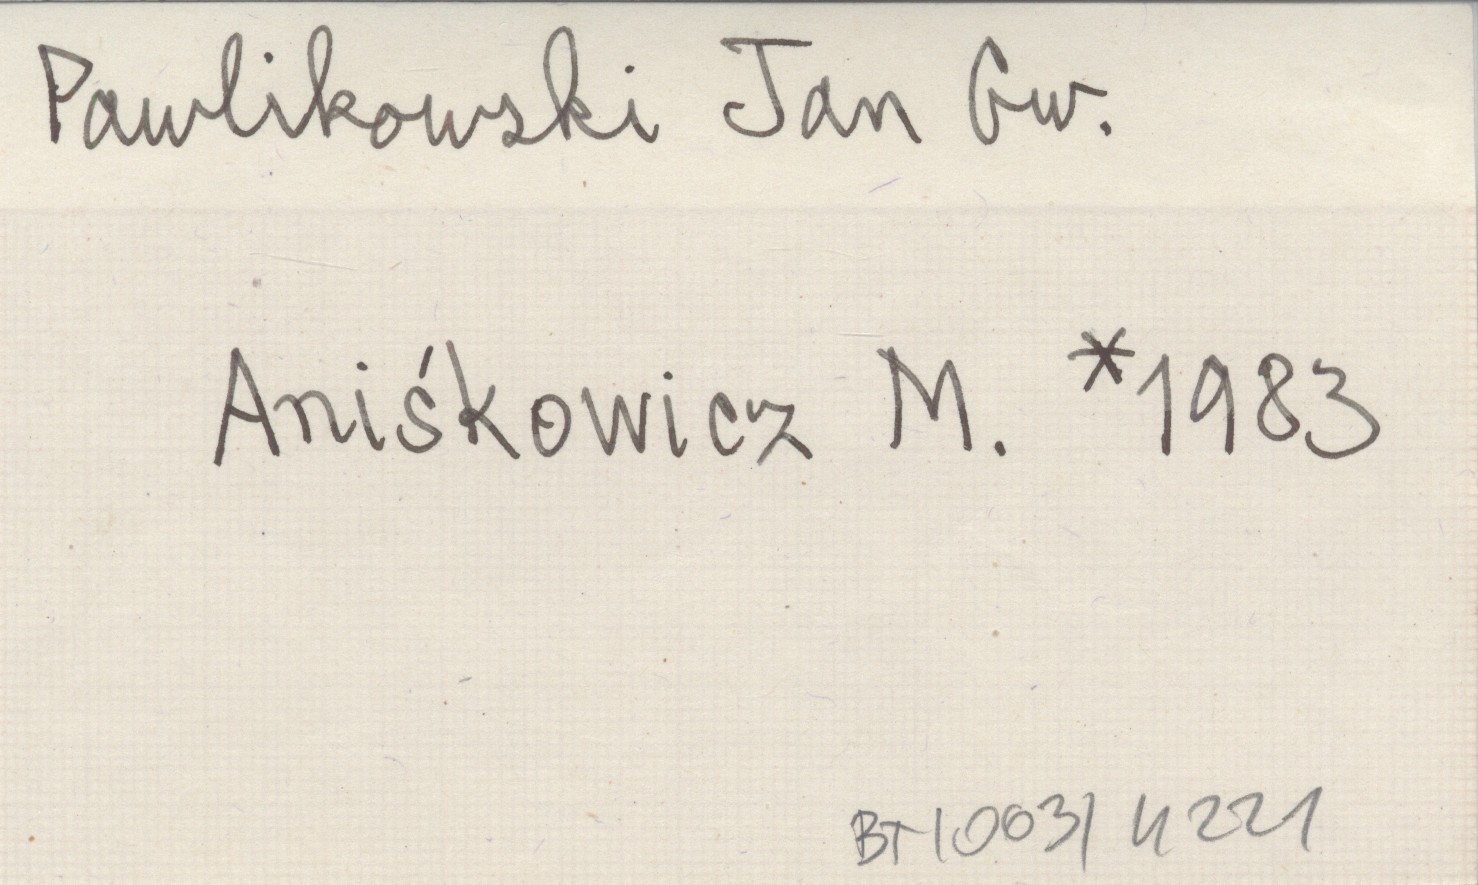 Pawlikowski Jan Gw.
Aniśkowicz M. *1983
BT/003/4221